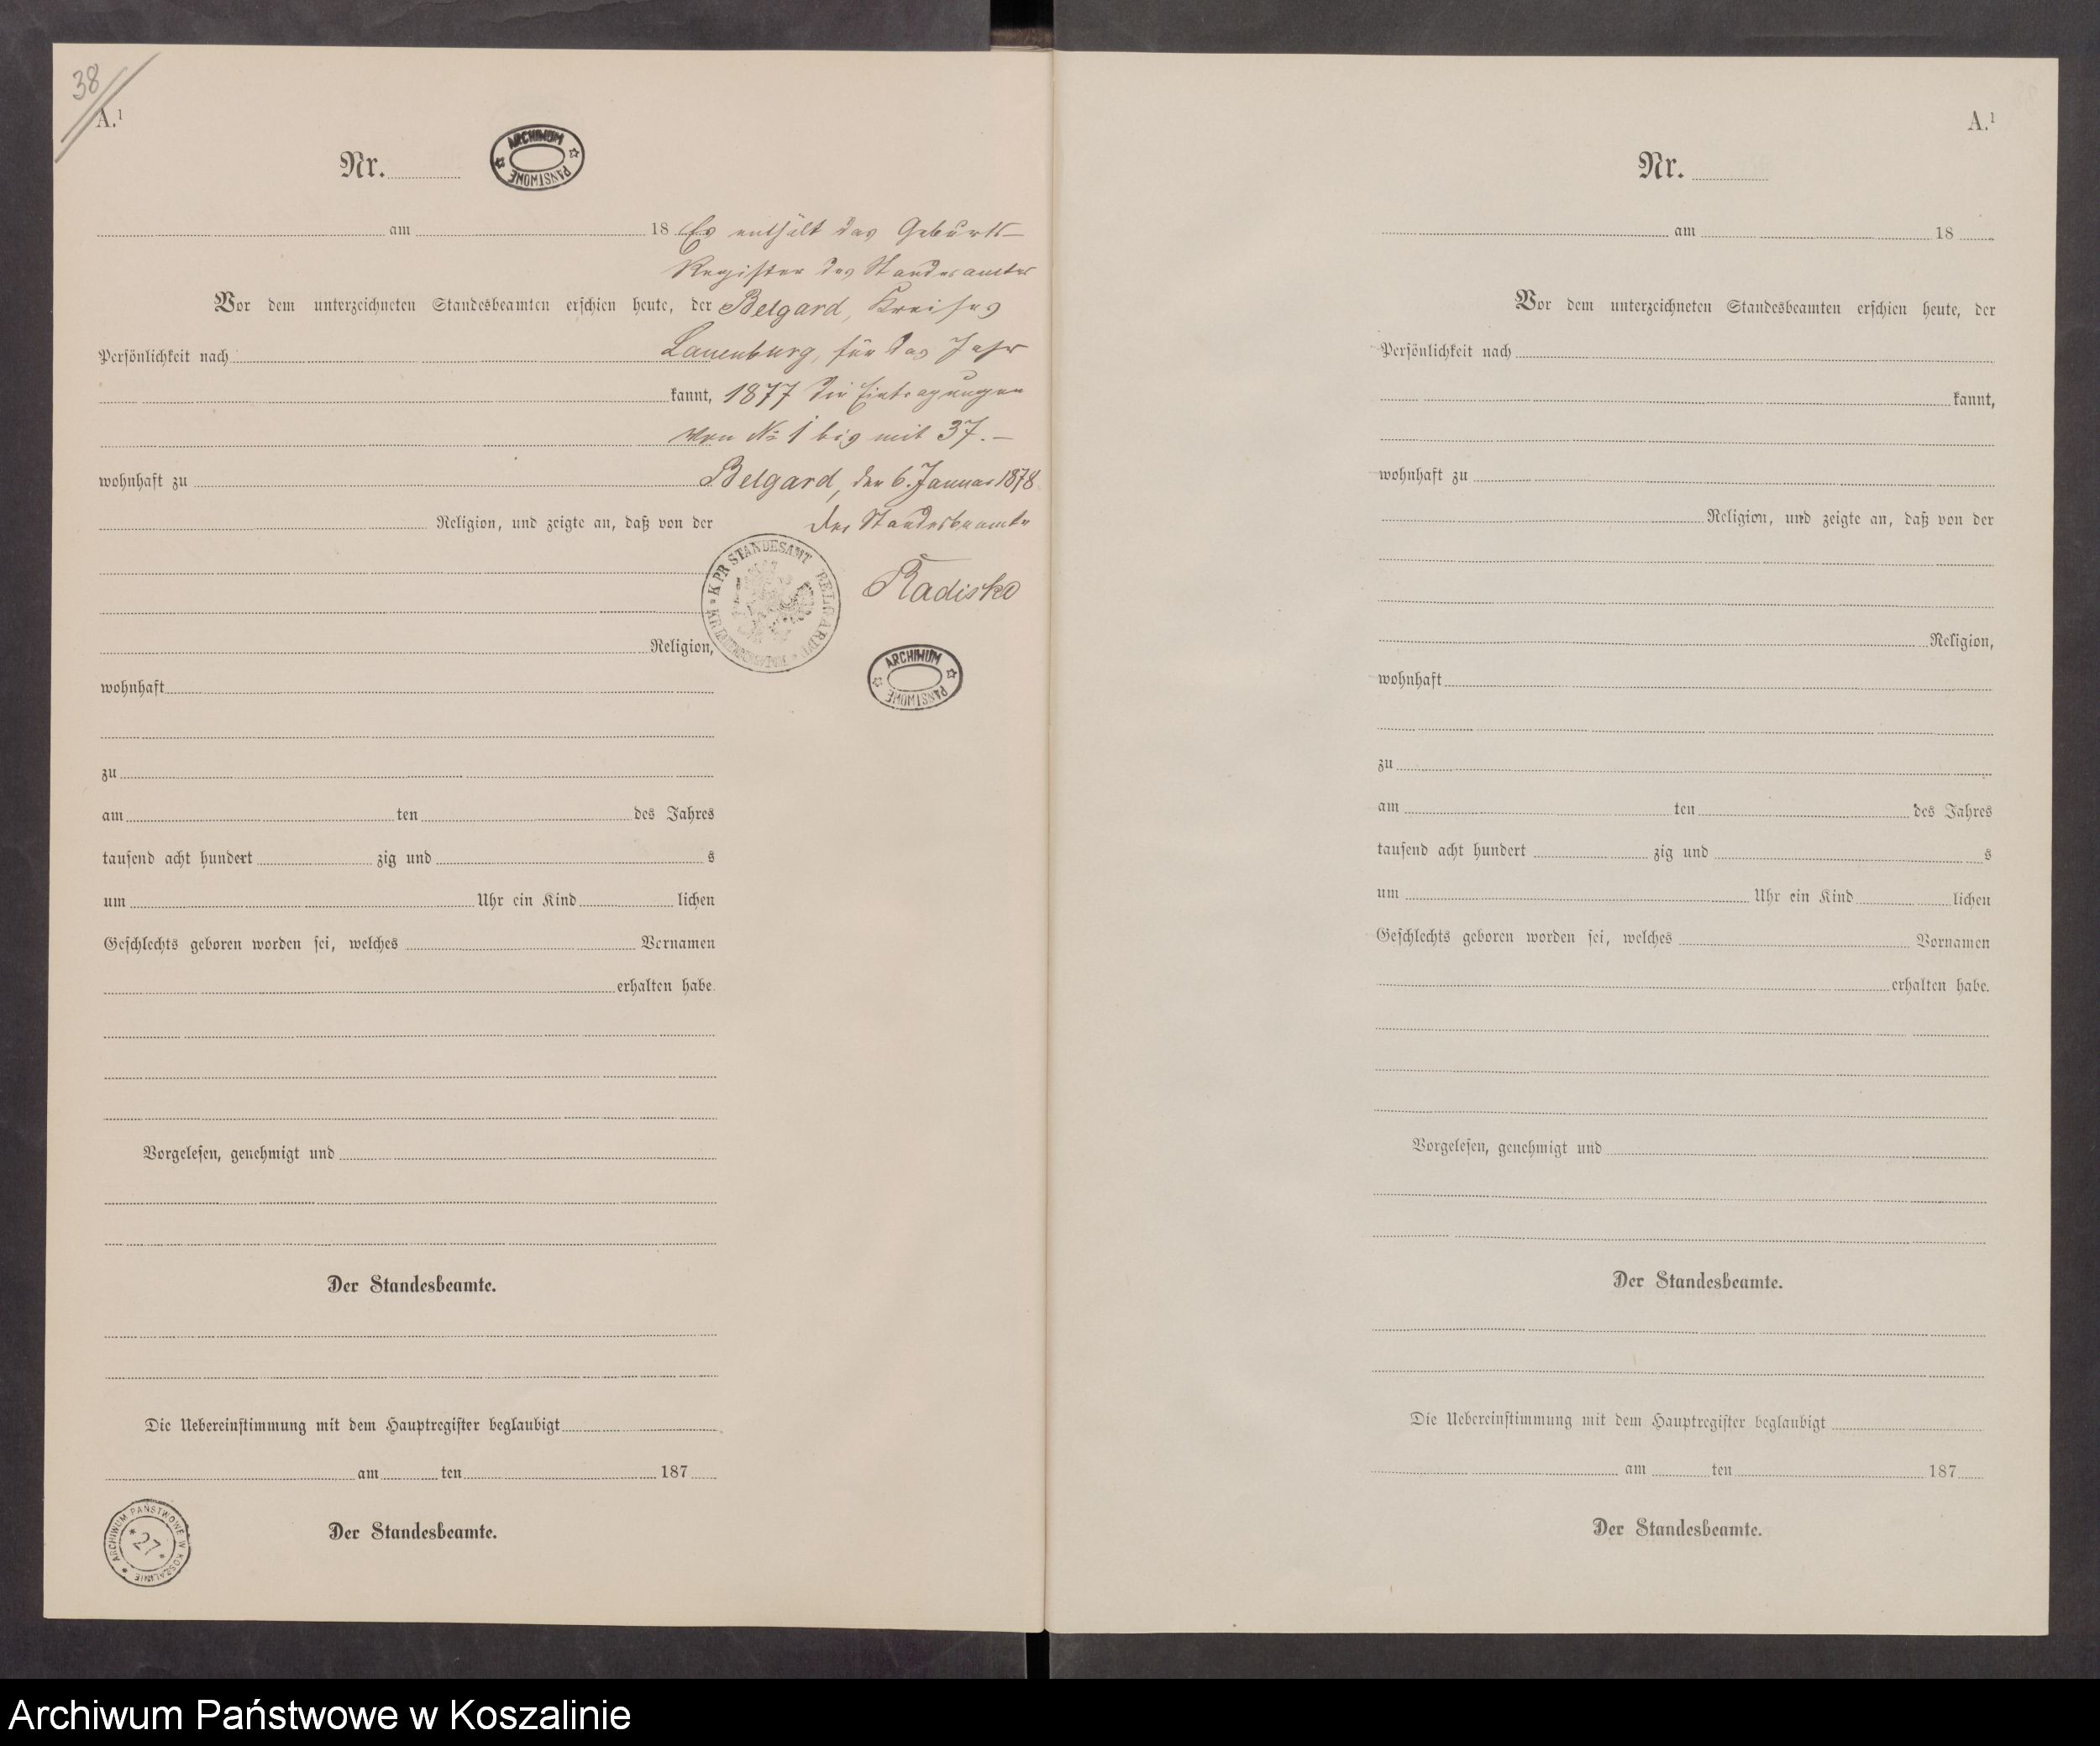 38
A.¹
Nr.
ARCHIWUM PAŃSTWOWE
am 18 Es enthält das Geburts-
Register des Standesamtes
Vor dem unterzeichneten Standesbeamten erschien heute, der Belgard, Kreises
Persönlichkeit nach Lauenburg, für das Jahr
kannt, 1877 die Eintragungen
von № 1 bis mit 37.-
wohnhaft zu Belgard, den 6. Januar 1878
Religion, und zeigte an, daß von der Der Standesbeamte
K. PR. STANDESAMT BELGARD
Radiske
Religion,
ARCHIWUM PAŃSTWOWE
wohnhaft
zu
am ten des Jahres
tausend acht hundert zig und s
um Uhr ein Kind lichen
Geschlechts geboren worden sei, welches Vornamen
erhalten habe.
Vorgelesen, genehmigt und
Der Standesbeamte.
Die Uebereinstimmung mit dem Hauptregister beglaubigt
am ten 187
Der Standesbeamte.
ARCHIWUM PAŃSTWOWE W KOSZALINIE
* 27 *
A.¹
Nr.
am 18
Vor dem unterzeichneten Standesbeamten erschien heute, der
Persönlichkeit nach
kannt,
wohnhaft zu
Religion, und zeigte an, daß von der
Religion,
wohnhaft
zu
am ten des Jahres
tausend acht hundert zig und s
um Uhr ein Kind lichen
Geschlechts geboren worden sei, welches Vornamen
erhalten habe.
Vorgelesen, genehmigt und
Der Standesbeamte.
Die Uebereinstimmung mit dem Hauptregister beglaubigt
am ten 187
Der Standesbeamte.
Archiwum Państwowe w Koszalinie